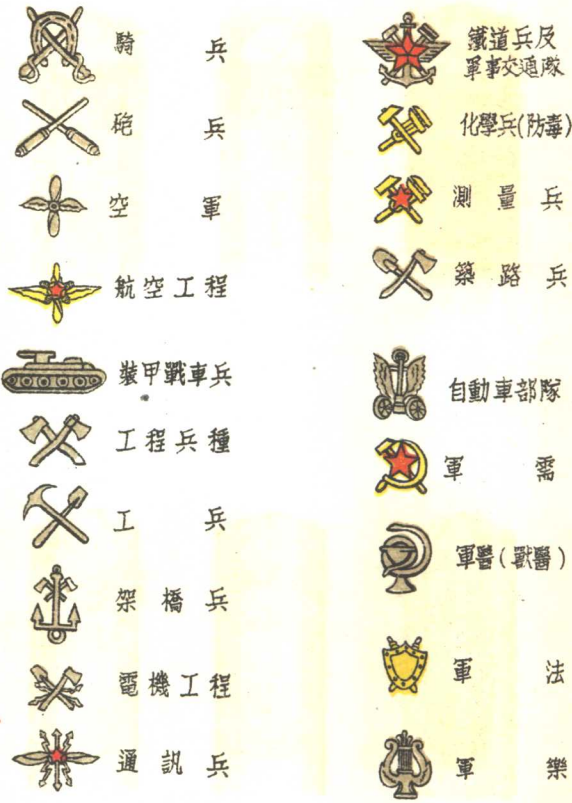 騎兵
砲兵
空軍
航空工程
裝甲戰車兵
工程兵種
工兵
架橋兵
電機工程
通訊兵
鐵道兵及
軍事交通隊
化學兵(防毒)
測量兵
築路兵
自動車部隊
軍需
軍醫(獸醫)
軍法
軍樂